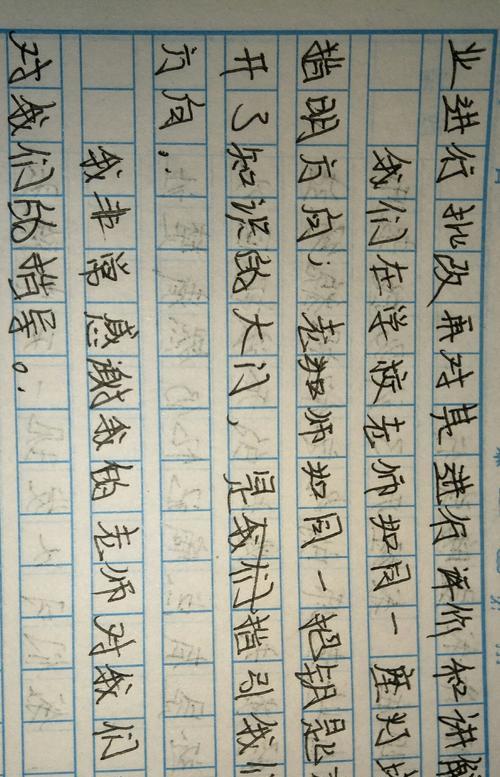 业进行批改再对其进行评价和讲解
我们在学校老师如同一座灯塔
指明方向；老师如同一把钥匙
开了知识的大门，是我们指引我们
方向，.
我非常感谢我的老师对我们
对我们的指导。.